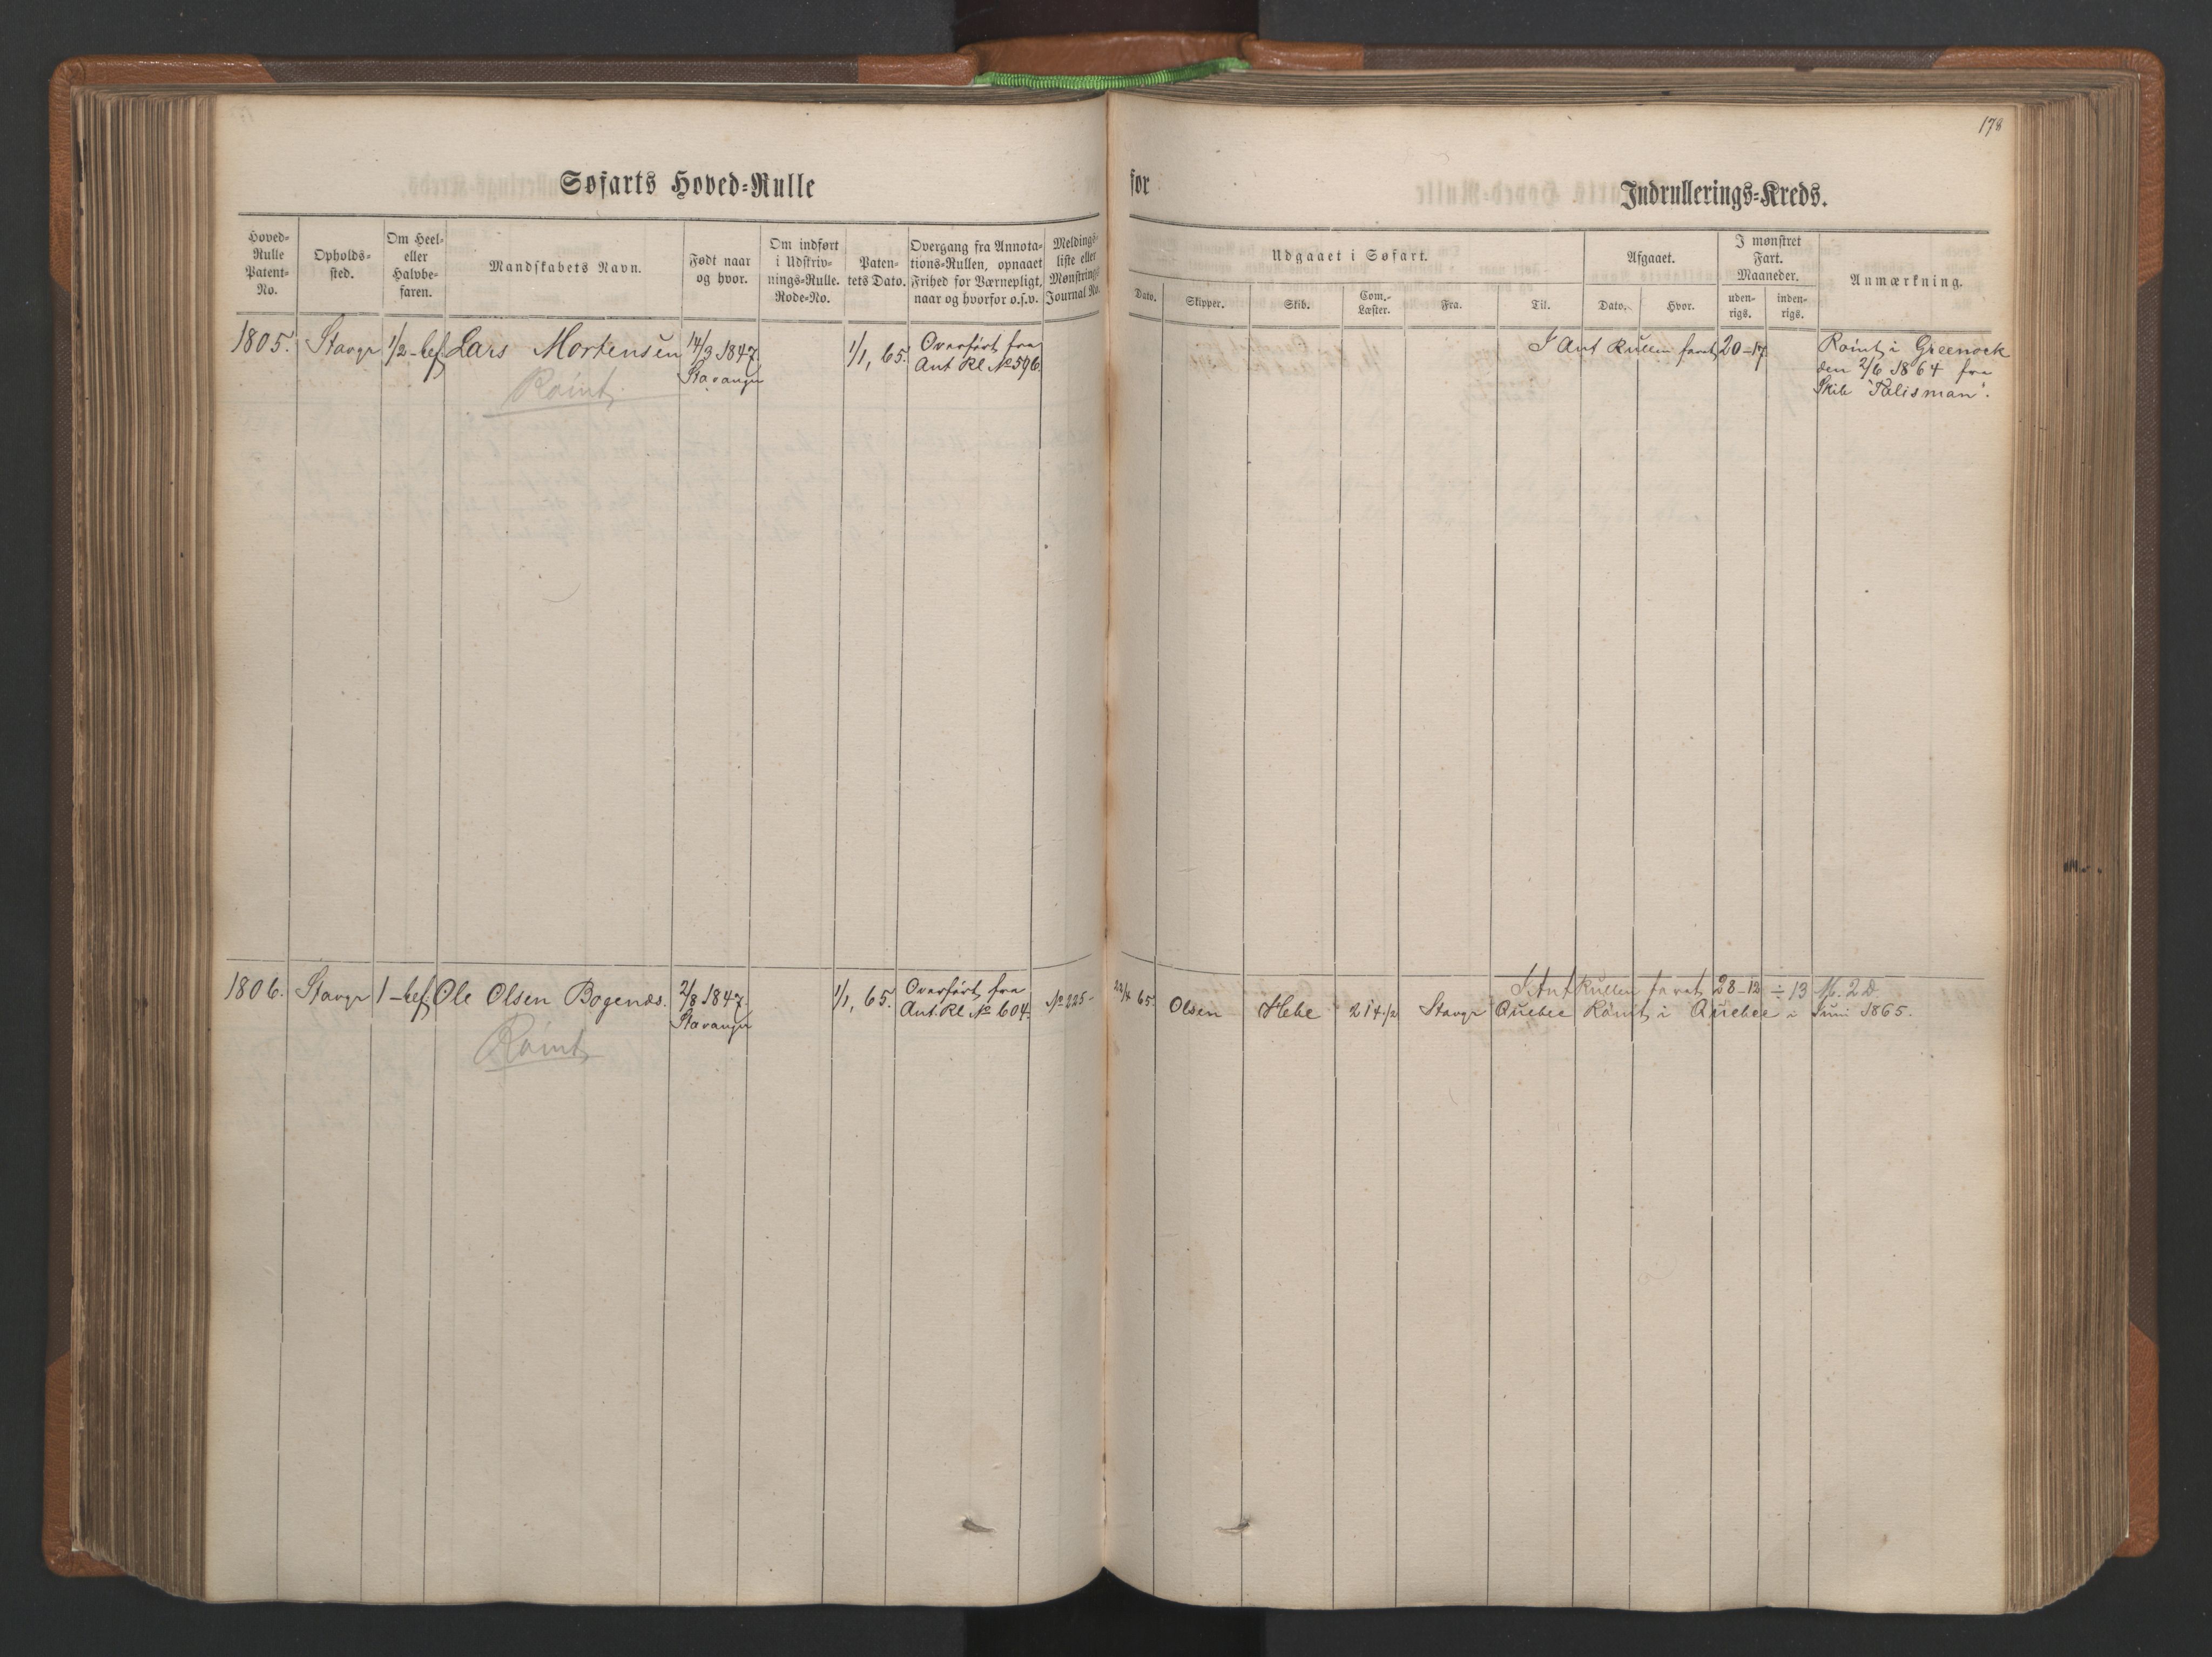 178
Søfarts Hoved-Rulle
for
Indrullerings-Kreds.
Hoved-
Rulle
Patent-
No.
Opholds-
sted.
Om Heel-
eller
Halvbe-
faren.
Mandskabets Navn.
Født naar
og hvor.
Om indført
i Udskriv-
nings-Rulle.
Rode-No.
Paten-
tets Dato.
Overgang fra Annota-
tions-Rullen, opnaaet
Frihed for Værnepligt,
naar og hvorfor o.s.v.
Meldings-
liste eller
Mønstrings-
Journal No.
Udgaaet i Søfart.
Dato.
Skipper.
Skib.
Com.-
Læster.
Fra.
Til.
Afgaaet.
Dato.
Hvor.
I mønstret
Fart.
Maaneder.
uden-
rigs.
inden-
rigs.
Anmærkning.
1805. Stavgr 1/2-bef. Lars Mortensen
Römt.
14/3 1847.
Stavanger
1/1, 65.
Overført fra
Ant Rl № 596.
I Ant Rullen faret 20-17
Römt i Greenock
den 2/6 1864 fra
Skib "Talisman".
1806. Stavgr 1-bef. Ole Olsen Bogenæs.
Römt
2/8 1847.
Stavanger
1/1, 65.
Overført fra
Ant. Rl № 604.
№ 225-
22/4 65. Olsen Hebe 214 1/2 Stavgr Quebec
I Ant Rullen faret 28-12 ÷ 13 M. 2 D
Römt i Quebec i Juni 1865.